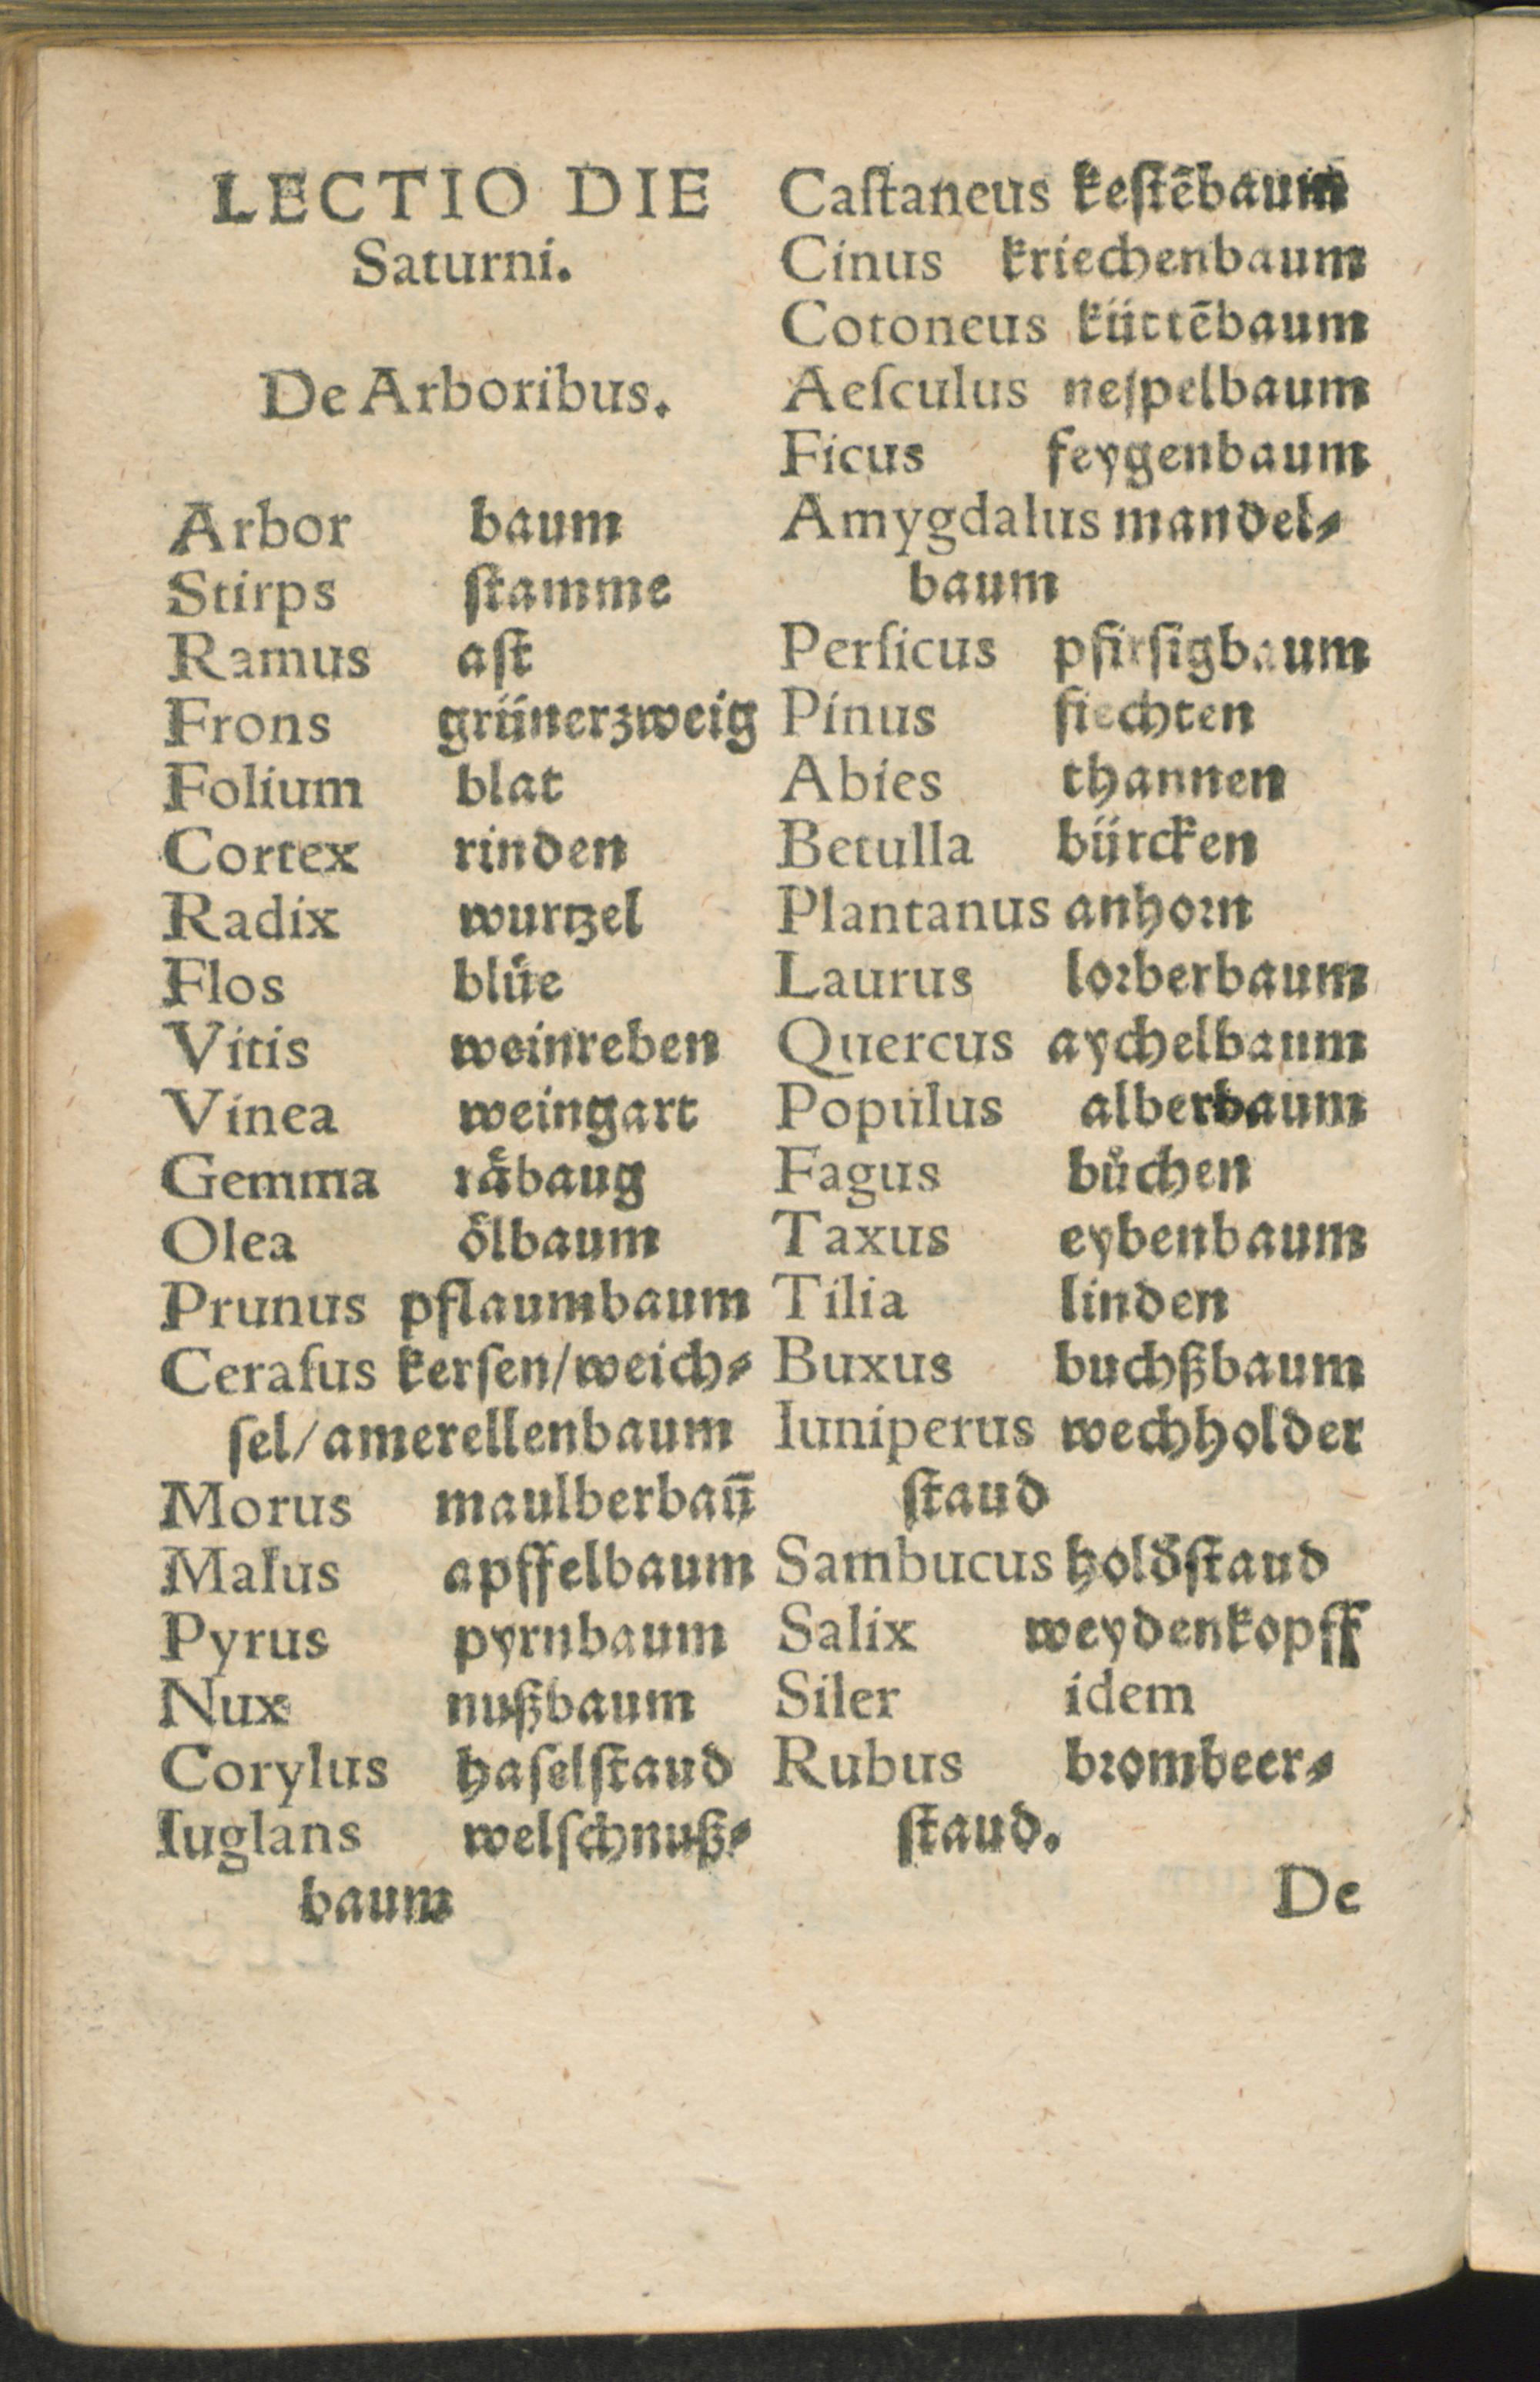 LECTIO DIE
Saturni.
De Arboribus.
Arbor baum
Stirps ſtamme
Ramus aſt
Frons grünerzweig
Folium blat
Cortex rinden
Radix wurtzel
Flos blüe
Vitis weinreben
Vinea weingart
Gemma råbaug
Olea ölbaum
Prunus pflaumbaum
Ceraſus kerſen/weich⸗
ſel/amerellenbaum
Morus maulberbaū
Malus apffelbaum
Pyrus pyrnbaum
Nux nußbaum
Corylus haſelſtaud
Iuglans welſchnuß⸗
baum
Caſtaneus keſtēbaum
Cinus kriechenbaum
Cotoneus küttēbaum
Aeſculus neſpelbaum
Ficus feygenbaum
Amygdalus mandel⸗
baum
Perſicus pfirſigbaum
Pinus fiechten
Abies thannen
Betulla bürcken
Plantanus anhorn
Laurus lorberbaum
Quercus aychelbaum
Populus alberbaum
Fagus bůchen
Taxus eybenbaum
Tilia linden
Buxus buchßbaum
Iuniperus wechholder
ſtaud
Sambucus holð̓ſtaud
Salix weydenkopff
Siler idem
Rubus brombeer⸗
ſtaud.
De